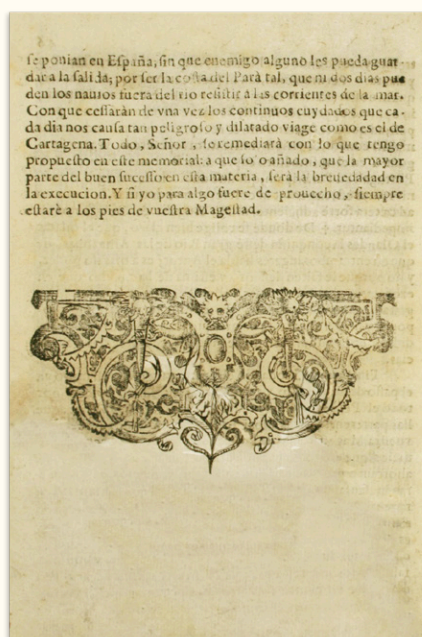 ſe ponian en Eſpaña, ſin que enemigo alguno les pueda guar
dar a la ſalida; por ſer la coſta del Parà tal, que ni dos dias pue
den los nauios fuera del rio reſiſtir à las corrientes de la mar.
Con que ceſſaràn de vna vez los continuos cuydados que ca-
da dia nos cauſa tan peligroſo y dilatado viage como es el de
Cartagena. Todo, Señor, ſe remediarà con lo que tengo
propueſto en eſte memorial: a que ſolo añado, que la mayor
parte del buen ſuceſſo en eſta materia, ſerà la breuedad en
la execucion. Y ſi yo para algo fuere de prouecho, ſiempre
eſtarè a los pies de vueſtra Mageſtad.